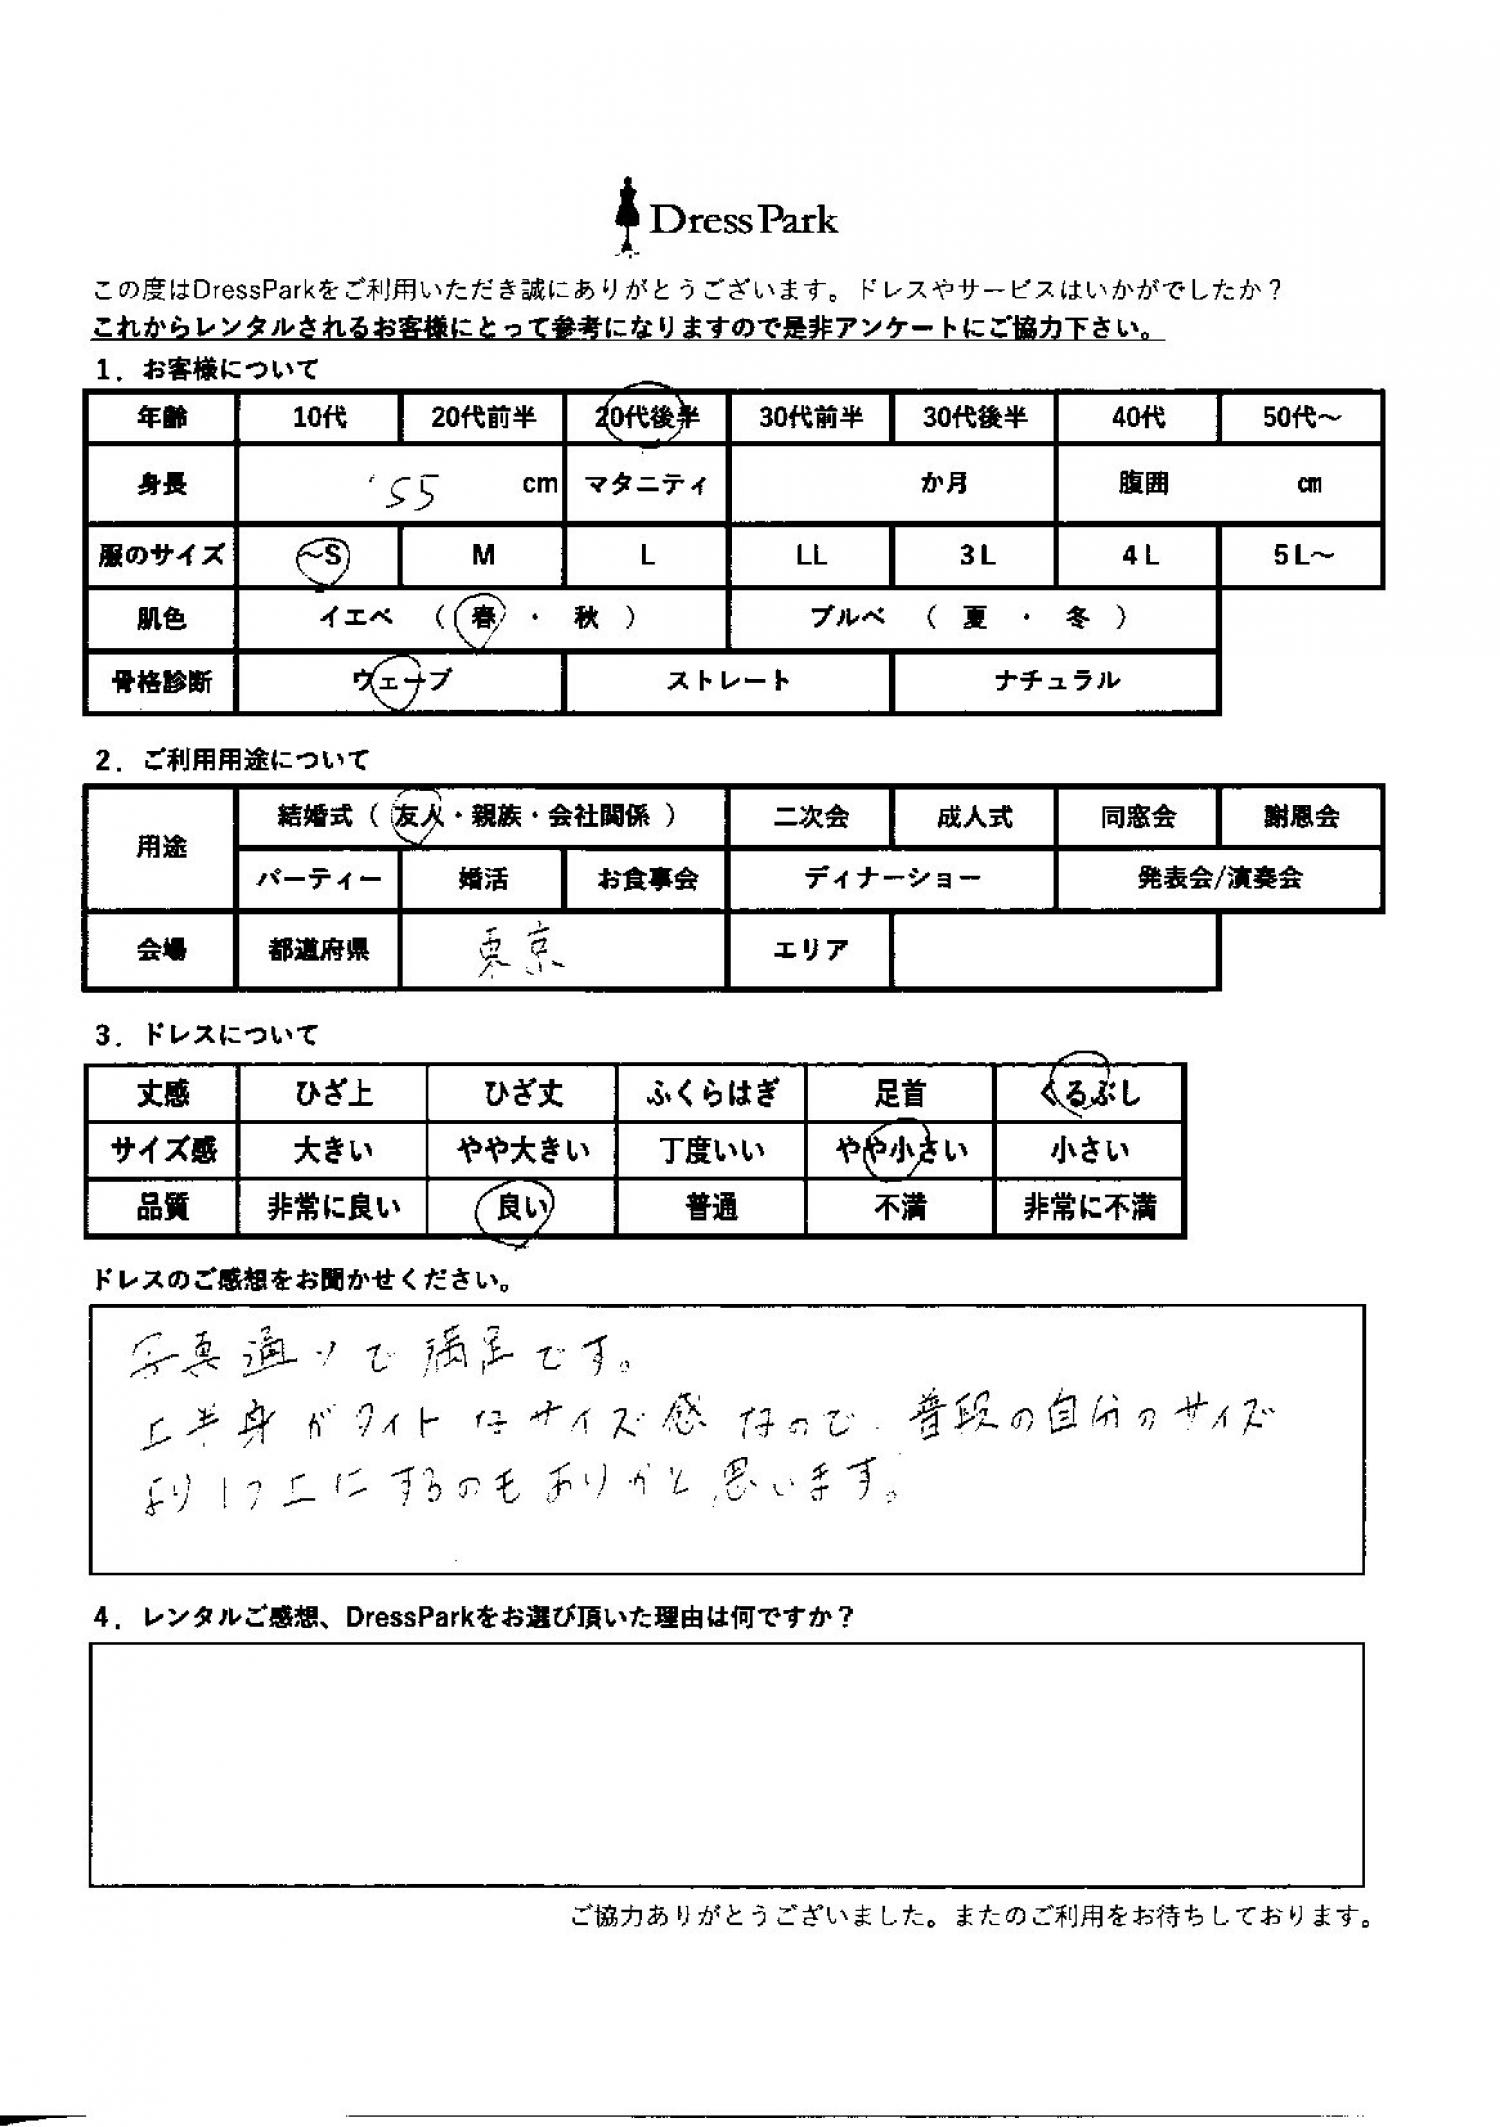 Dress Park
この度はDressParkをご利用いただき誠にありがとうございます。ドレスやサービスはいかがでしたか？
これからレンタルされるお客様にとって参考になりますので是非アンケートにご協力下さい。
1．お客様について
年齢 10代 20代前半 20代後半 30代前半 30代後半 40代 50代～
身長 155 cm マタニティ か月 腹囲 ㎝
服のサイズ ～S M L LL 3L 4L 5L～
肌色 イエベ （ 春 ・ 秋 ） ブルベ （ 夏 ・ 冬 ）
骨格診断 ウェーブ ストレート ナチュラル
2．ご利用用途について
用途 結婚式（ 友人・親族・会社関係 ） 二次会 成人式 同窓会 謝恩会
パーティー 婚活 お食事会 ディナーショー 発表会/演奏会
会場 都道府県 東京 エリア
3．ドレスについて
丈感 ひざ上 ひざ丈 ふくらはぎ 足首 くるぶし
サイズ感 大きい やや大きい 丁度いい やや小さい 小さい
品質 非常に良い 良い 普通 不満 非常に不満
ドレスのご感想をお聞かせください。
写真通りで満足です。
上半身がタイトなサイズ感なので、普段の自分のサイズ
より1つ上にするのもありかと思います。
4．レンタルご感想、DressParkをお選び頂いた理由は何ですか？
ご協力ありがとうございました。またのご利用をお待ちしております。